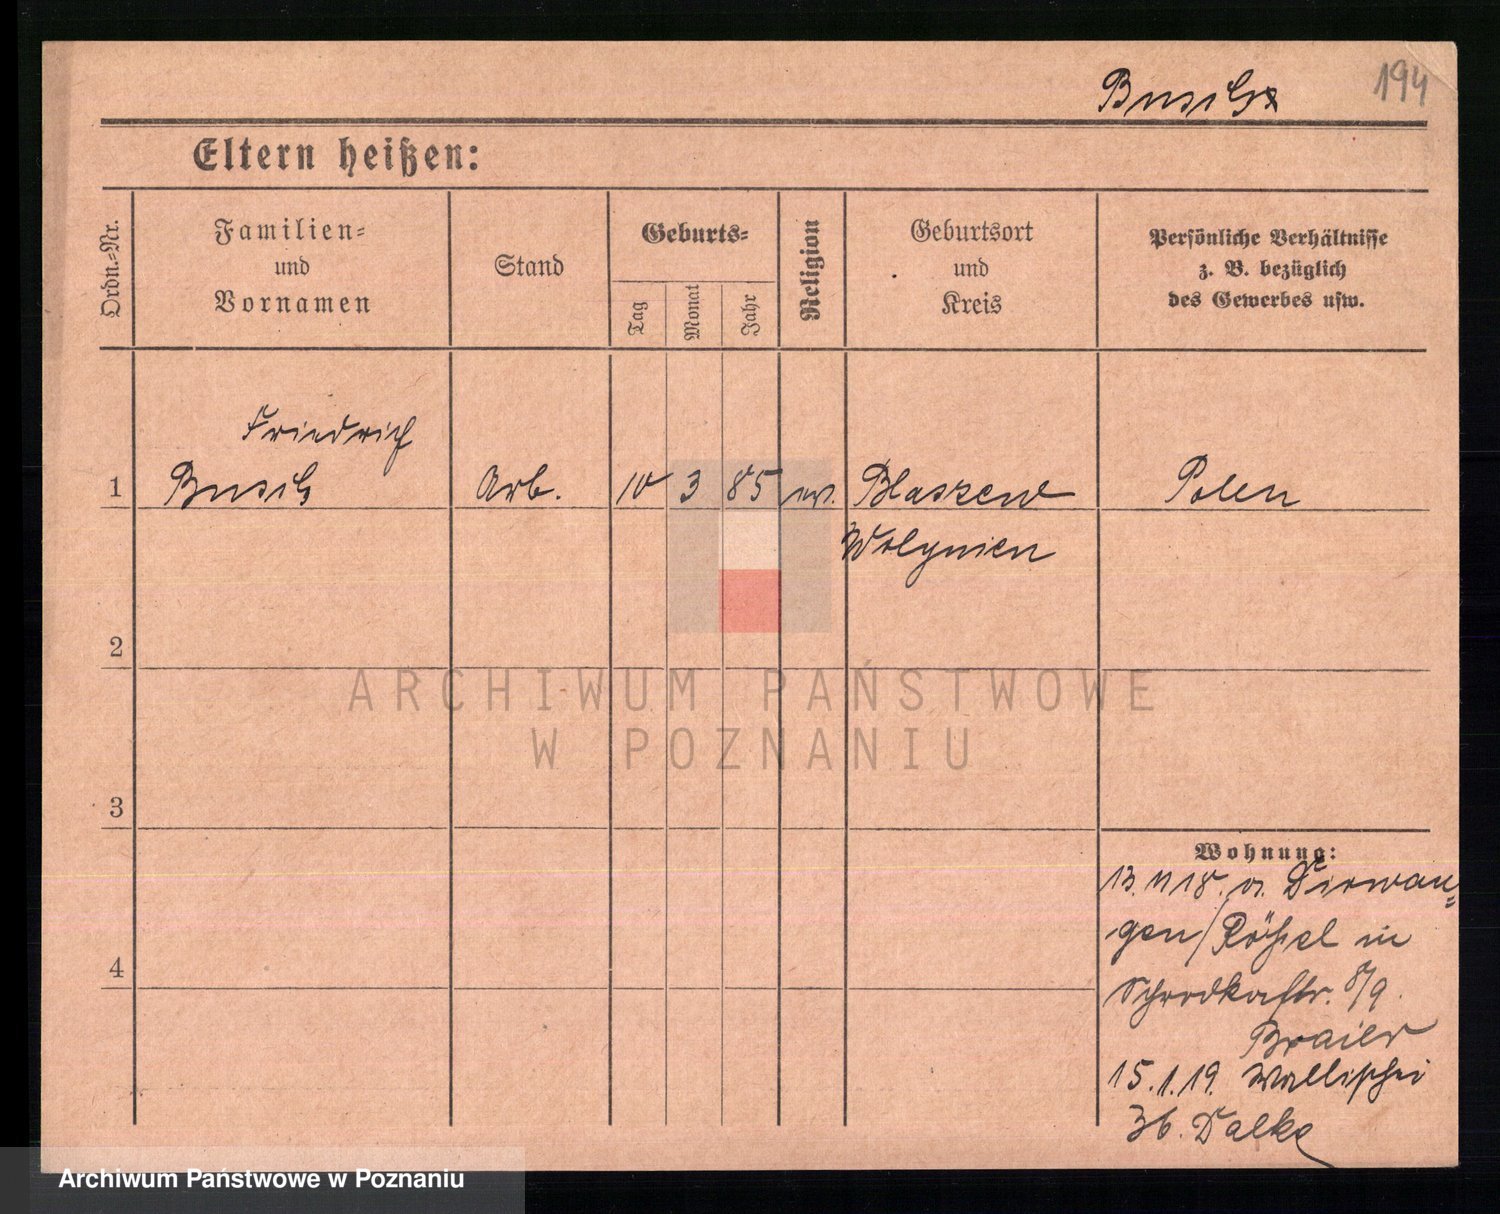 Busch
194
Eltern heißen:
Ordn.-Nr.
Familien-
und
Vornamen
Stand
Geburts-
Tag
Monat
Jahr
Religion
Geburtsort
und
Kreis
Persönliche Verhältnisse
z. B. bezüglich
des Gewerbes usw.
Friedrich
1 Busch Arb. 10 3 85 ev. Blaszend Polen
Wolynien
2
ARCHIWUM PAŃSTWOWE
W POZNANIU
3
Wohnung:
13. 11 18. a. Dürwan-
gen/Rößel in
4
Schrodkastr. 8/9.
Braier
15.1.19. Wallischei
36. Dalke
Archiwum Państwowe w Poznaniu